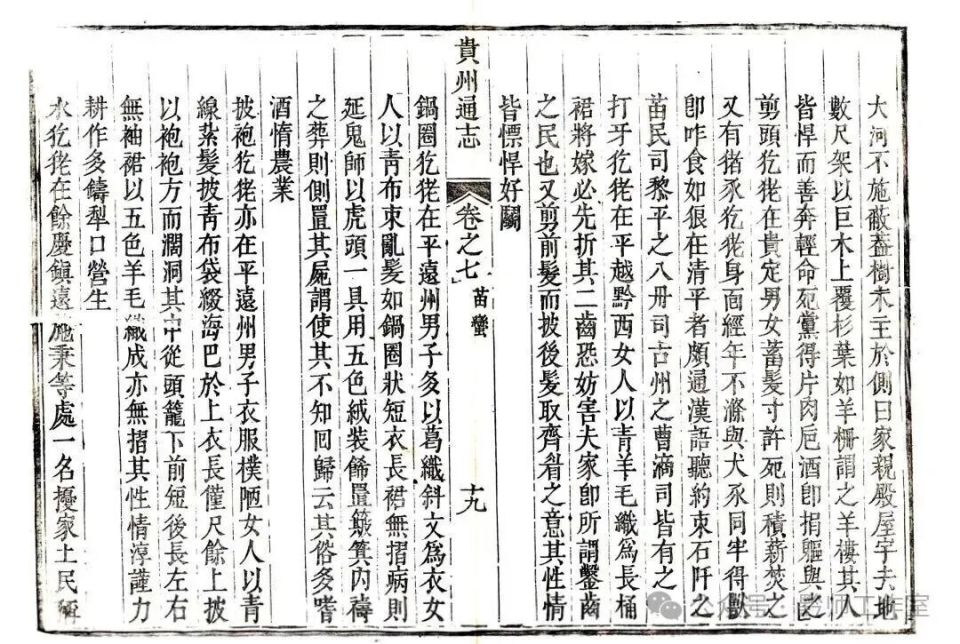 大河不施蔽蓋樹木主於側曰家親殿屋宇去地
數尺架以巨木上覆杉葉如羊柵謂之羊樓其人
皆悍而善奔輕命死黨得片肉卮酒卽捐軀與之
剪頭犵狫在貴定男女蓄髮寸許死則積薪焚之
又有猪豕犵狫身面經年不滌與犬豕同牢得獸
卽咋食如狼在清平者頗通漢語聽約束石阡之
苗民司黎平之八舟司古州之曹滴司皆有之
打牙犵狫在平越黔西女人以青羊毛織爲長桶
裙將嫁必先折其二齒恐妨害夫家卽所謂鑿齒
之民也又剪前髮而披後髮取齊眉之意其性情
皆慓悍好鬭
貴州通志
卷之七
苗蠻
十九
鍋圈犵狫在平遠州男子多以葛織斜文爲衣女
人以青布束亂髮如鍋圈狀短衣長裙無摺病則
延鬼師以虎頭一具用五色絨装餙置簸箕內禱
之葬則側置其屍謂使其不知囘歸云其俗多嗜
酒惰農業
披袍犵狫亦在平遠州男子衣服樸陋女人以青
線紮髮披青布袋綴海巴於上衣長僅尺餘上披
以袍袍方而濶洞其中從頭籠下前短後長左右
無袖裙以五色羊毛織成亦無摺其性情淳謹力
耕作多鑄犁口營生
水犵狫在餘慶鎮遠施秉等處一名擾家土民稱
公众号 工作室